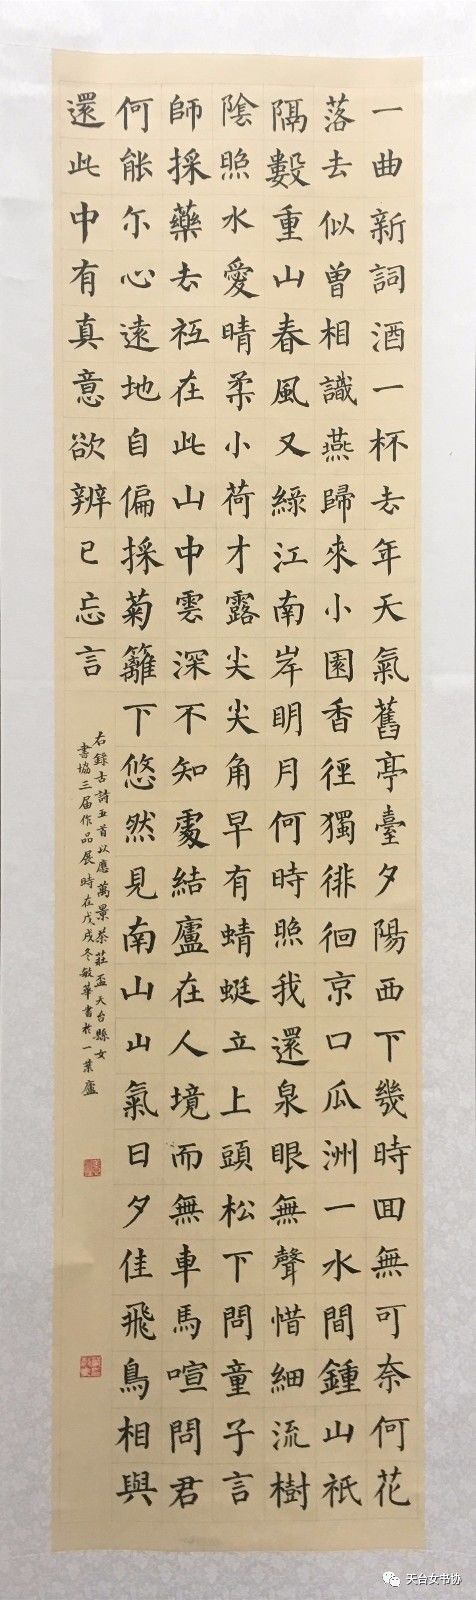 一曲新詞酒一杯去年天氣舊亭臺夕陽西下幾時囬無可奈何花
落去似曾相識燕歸來小園香徑獨徘徊京口瓜洲一水間鍾山祇
隔數重山春風又綠江南岸明月何時照我還泉眼無聲惜細流樹
陰照水愛晴柔小荷才露尖尖角早有蜻蜓立上頭松下問童子言
師採藥去祇在此山中雲深不知處結廬在人境而無車馬喧問君
何能尔心遠地自偏採菊籬下悠然見南山山氣日夕佳飛鳥相與
還此中有真意欲辨已忘言
右錄古詩五首以應萬景茶莊盃天台縣女
書協三届作品展時在戊戌冬敏華書於一葉廬
天台女书协